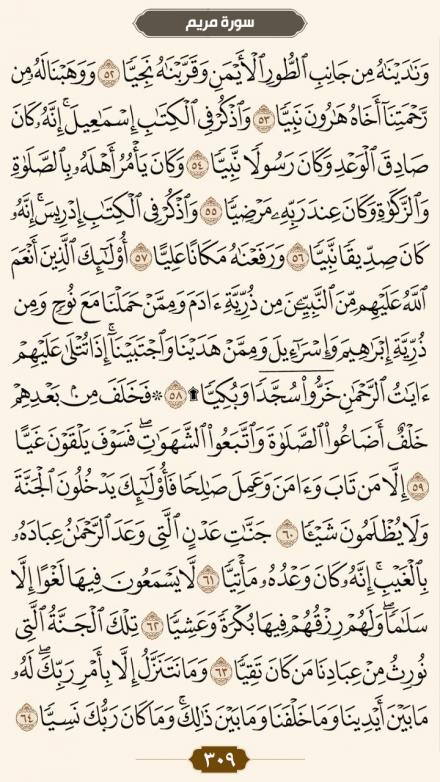 سورة مريم
وَنَٰدَيْنَٰهُ مِن جَانِبِ ٱلطُّورِ ٱلْأَيْمَنِ وَقَرَّبْنَٰهُ نَجِيًّا ٥٢ وَوَهَبْنَا لَهُۥ مِن
رَّحْمَتِنَآ أَخَاهُ هَٰرُونَ نَبِيًّا ٥٣ وَٱذْكُرْ فِى ٱلْكِتَٰبِ إِسْمَٰعِيلَ ۚ إِنَّهُۥ كَانَ
صَادِقَ ٱلْوَعْدِ وَكَانَ رَسُولًا نَّبِيًّا ٥٤ وَكَانَ يَأْمُرُ أَهْلَهُۥ بِٱلصَّلَوٰةِ
وَٱلزَّكَوٰةِ وَكَانَ عِندَ رَبِّهِۦ مَرْضِيًّا ٥٥ وَٱذْكُرْ فِى ٱلْكِتَٰبِ إِدْرِيسَ ۚ إِنَّهُۥ
كَانَ صِدِّيقًا نَّبِيًّا ٥٦ وَرَفَعْنَٰهُ مَكَانًا عَلِيًّا ٥٧ أُو۟لَٰٓئِكَ ٱلَّذِينَ أَنْعَمَ
ٱللَّهُ عَلَيْهِم مِّنَ ٱلنَّبِيِّۦنَ مِن ذُرِّيَّةِ ءَادَمَ وَمِمَّنْ حَمَلْنَا مَعَ نُوحٍ وَمِن
ذُرِّيَّةِ إِبْرَٰهِيمَ وَإِسْرَٰٓءِيلَ وَمِمَّنْ هَدَيْنَا وَٱجْتَبَيْنَآ ۚ إِذَا تُتْلَىٰ عَلَيْهِمْ
ءَايَٰتُ ٱلرَّحْمَٰنِ خَرُّوا۟ سُجَّدًا وَبُكِيًّا ۩ ٥٨ ۞ فَخَلَفَ مِنۢ بَعْدِهِمْ
خَلْفٌ أَضَاعُوا۟ ٱلصَّلَوٰةَ وَٱتَّبَعُوا۟ ٱلشَّهَوَٰتِ ۖ فَسَوْفَ يَلْقَوْنَ غَيًّا
٥٩ إِلَّا مَن تَابَ وَءَامَنَ وَعَمِلَ صَٰلِحًا فَأُو۟لَٰٓئِكَ يَدْخُلُونَ ٱلْجَنَّةَ
وَلَا يُظْلَمُونَ شَيْـًٔا ٦٠ جَنَّٰتِ عَدْنٍ ٱلَّتِى وَعَدَ ٱلرَّحْمَٰنُ عِبَادَهُۥ
بِٱلْغَيْبِ ۚ إِنَّهُۥ كَانَ وَعْدُهُۥ مَأْتِيًّا ٦١ لَّا يَسْمَعُونَ فِيهَا لَغْوًا إِلَّا
سَلَٰمًا ۖ وَلَهُمْ رِزْقُهُمْ فِيهَا بُكْرَةً وَعَشِيًّا ٦٢ تِلْكَ ٱلْجَنَّةُ ٱلَّتِى
نُورِثُ مِنْ عِبَادِنَا مَن كَانَ تَقِيًّا ٦٣ وَمَا نَتَنَزَّلُ إِلَّا بِأَمْرِ رَبِّكَ ۖ لَهُۥ
مَا بَيْنَ أَيْدِينَا وَمَا خَلْفَنَا وَمَا بَيْنَ ذَٰلِكَ ۚ وَمَا كَانَ رَبُّكَ نَسِيًّا ٦٤
٣٠٩